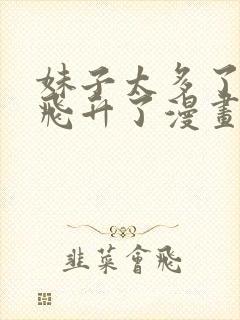 妹子太多了
飛升了漫畫
韭菜會飛